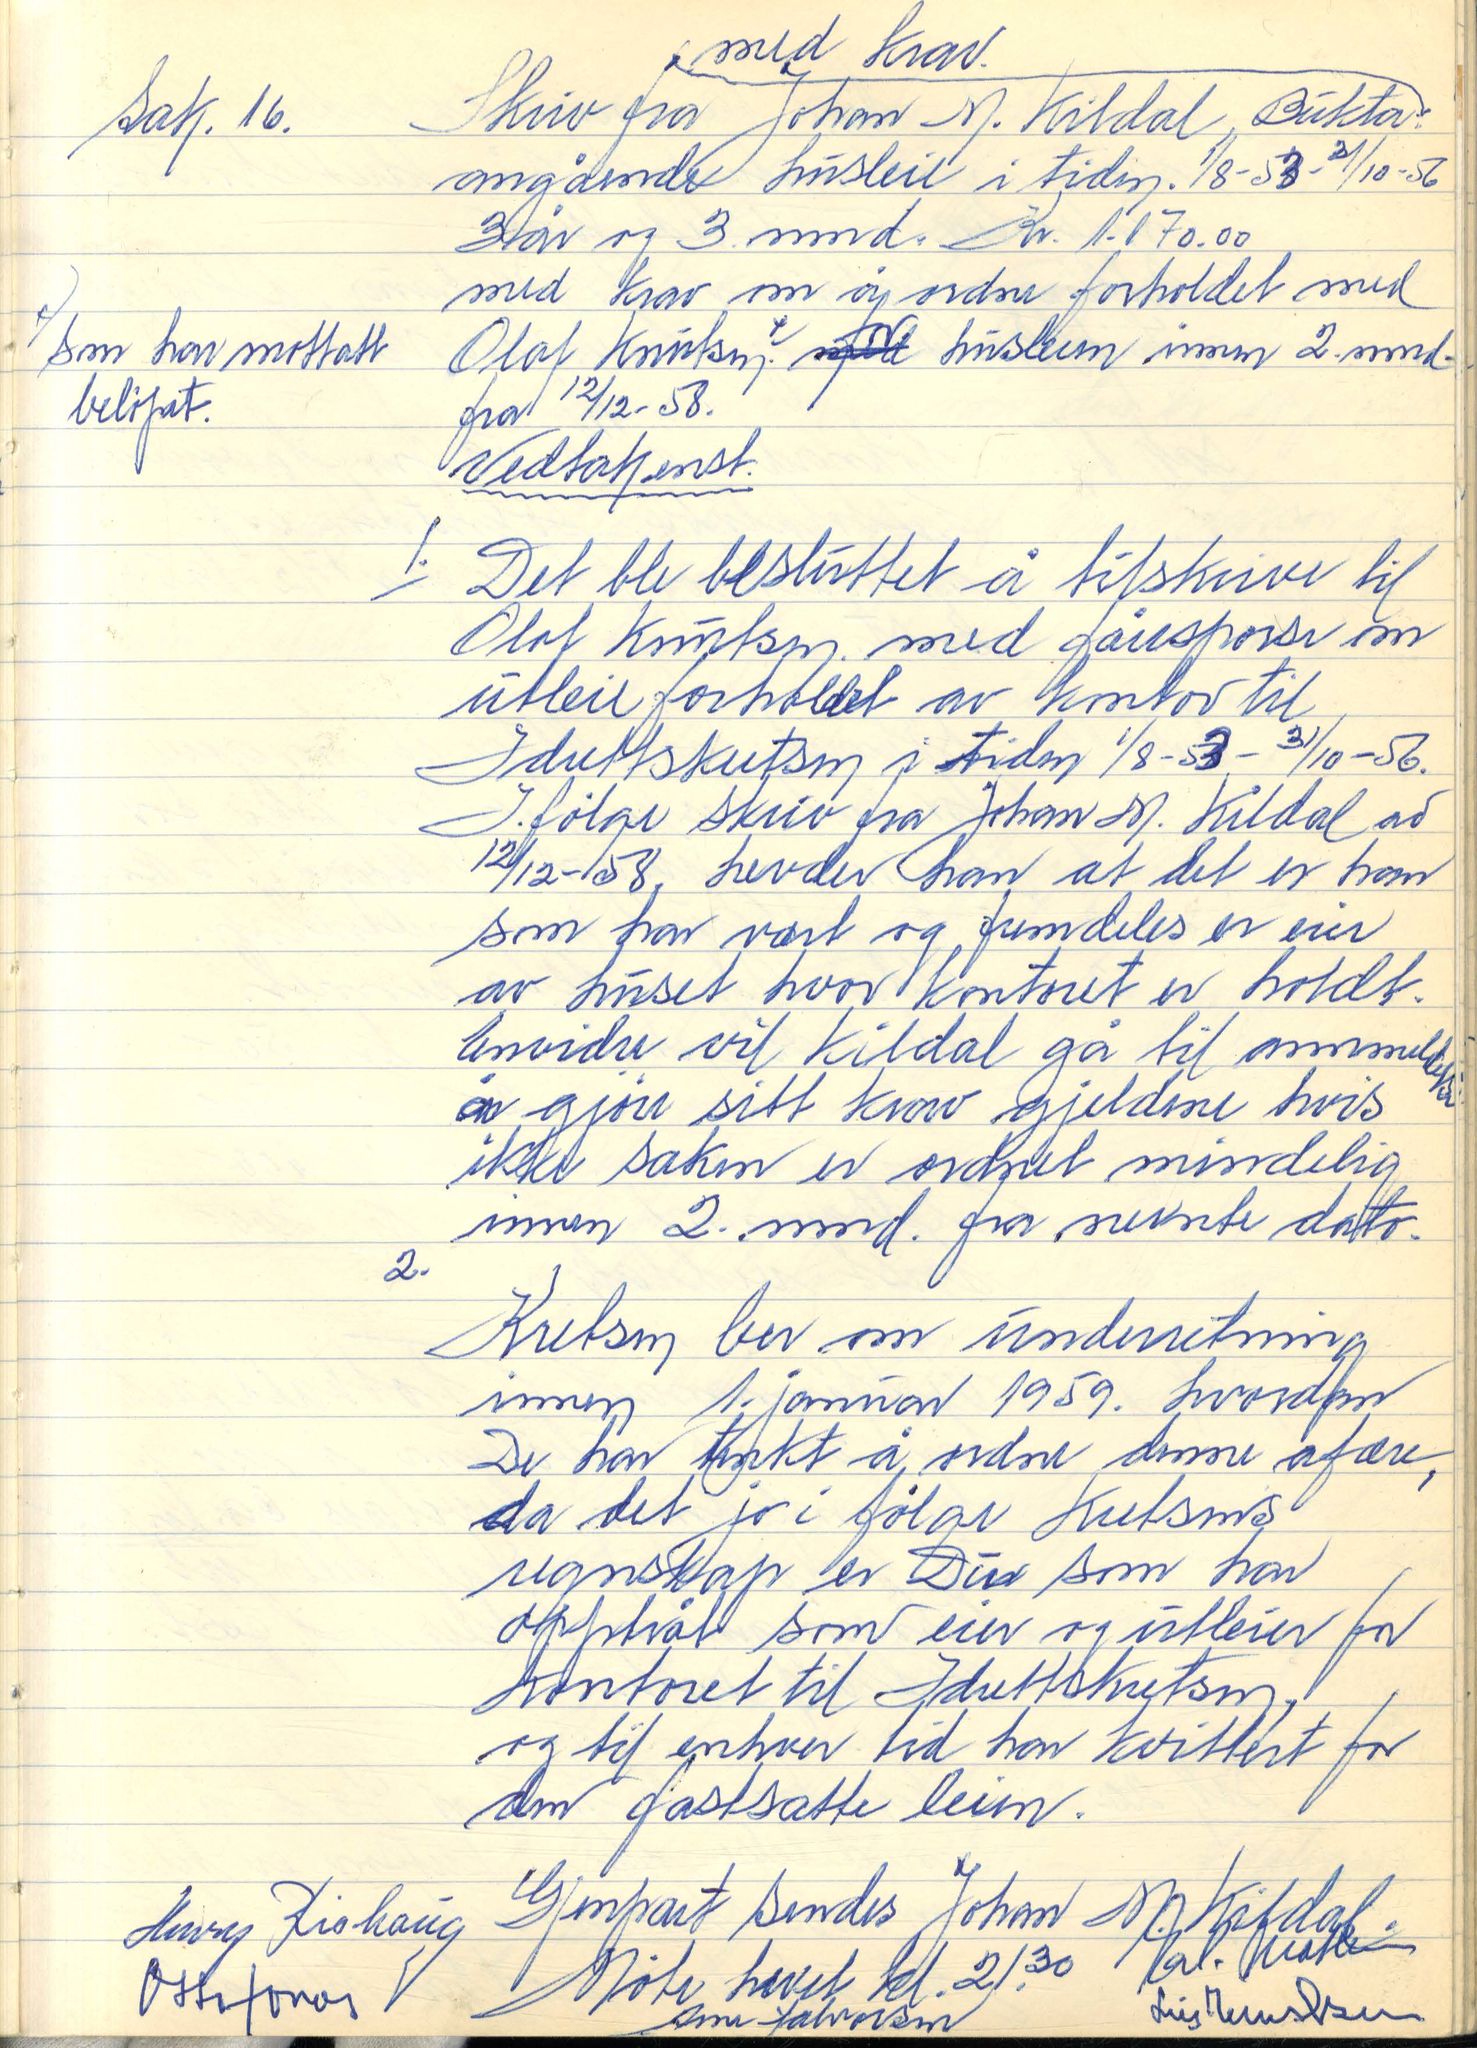 med krav.
Sak. 16. Skriv fra Johan M. Kildal, Bukta:
angående husleie i tiden. 1/8-53-31/10-56
3 år og 3 mnd. Kr. 1.170.00
med krav om å ordne forholdet med
Olaf Knutsen. x husleien innen 2. mnd.
x) som har mottatt
beløpet.
fra 12/12-58.
Vedtak enst.
1. Det ble besluttet å tilskrive til
Olaf Knutsen. med förespørse om
utleie forholdet av kontor til
Idrettskretsen i tiden 1/8-53-31/10-56.
I følge skriv fra Johan M. Kildal av
12/12-58, hevder han at det er han
som har vært og fremdeles er eier
av huset hvor kontoret er holdt.
Envidre vil Kildal gå til
å gjøre sitt krav gjeldene hvis
ikke saken er ordnet mindelig
innen 2. mnd. fra nevnte dato.
2.
Kretsen ber om underretning
innen 1. januar 1959. hvordan
De har tenkt å ordne denne afære,
da det jo i følge kretsens
regnskap er Du som har
opptråt som eier og utleier for
kontoret til Idrettskretsen,
og til enhver tid har kvittert for
den fastsatte leien.
Gjenpart sendes Johan M. Kildal.
Møte hevet kl. 21.30
Arne Halvorsen